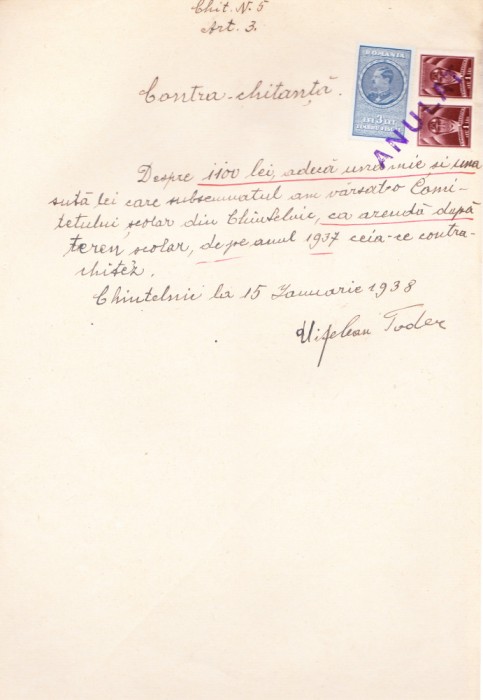 Chit. N. 5
Art. 3.
ROMANIA
LEI 3 LEI
1 LEU
1 LEU
ANULAT
Contra-chitanță.
Despre 1100 lei, adecă una mie si una
sută lei care subsemnatul am vărsat-o Comi-
tetului școlar din Chintelnic, ca arendă după
teren școlar, de pe anul 1937 ceia-ce contra-
chitéz.
Chintelnic la 15 Ianuarie 1938
Toder